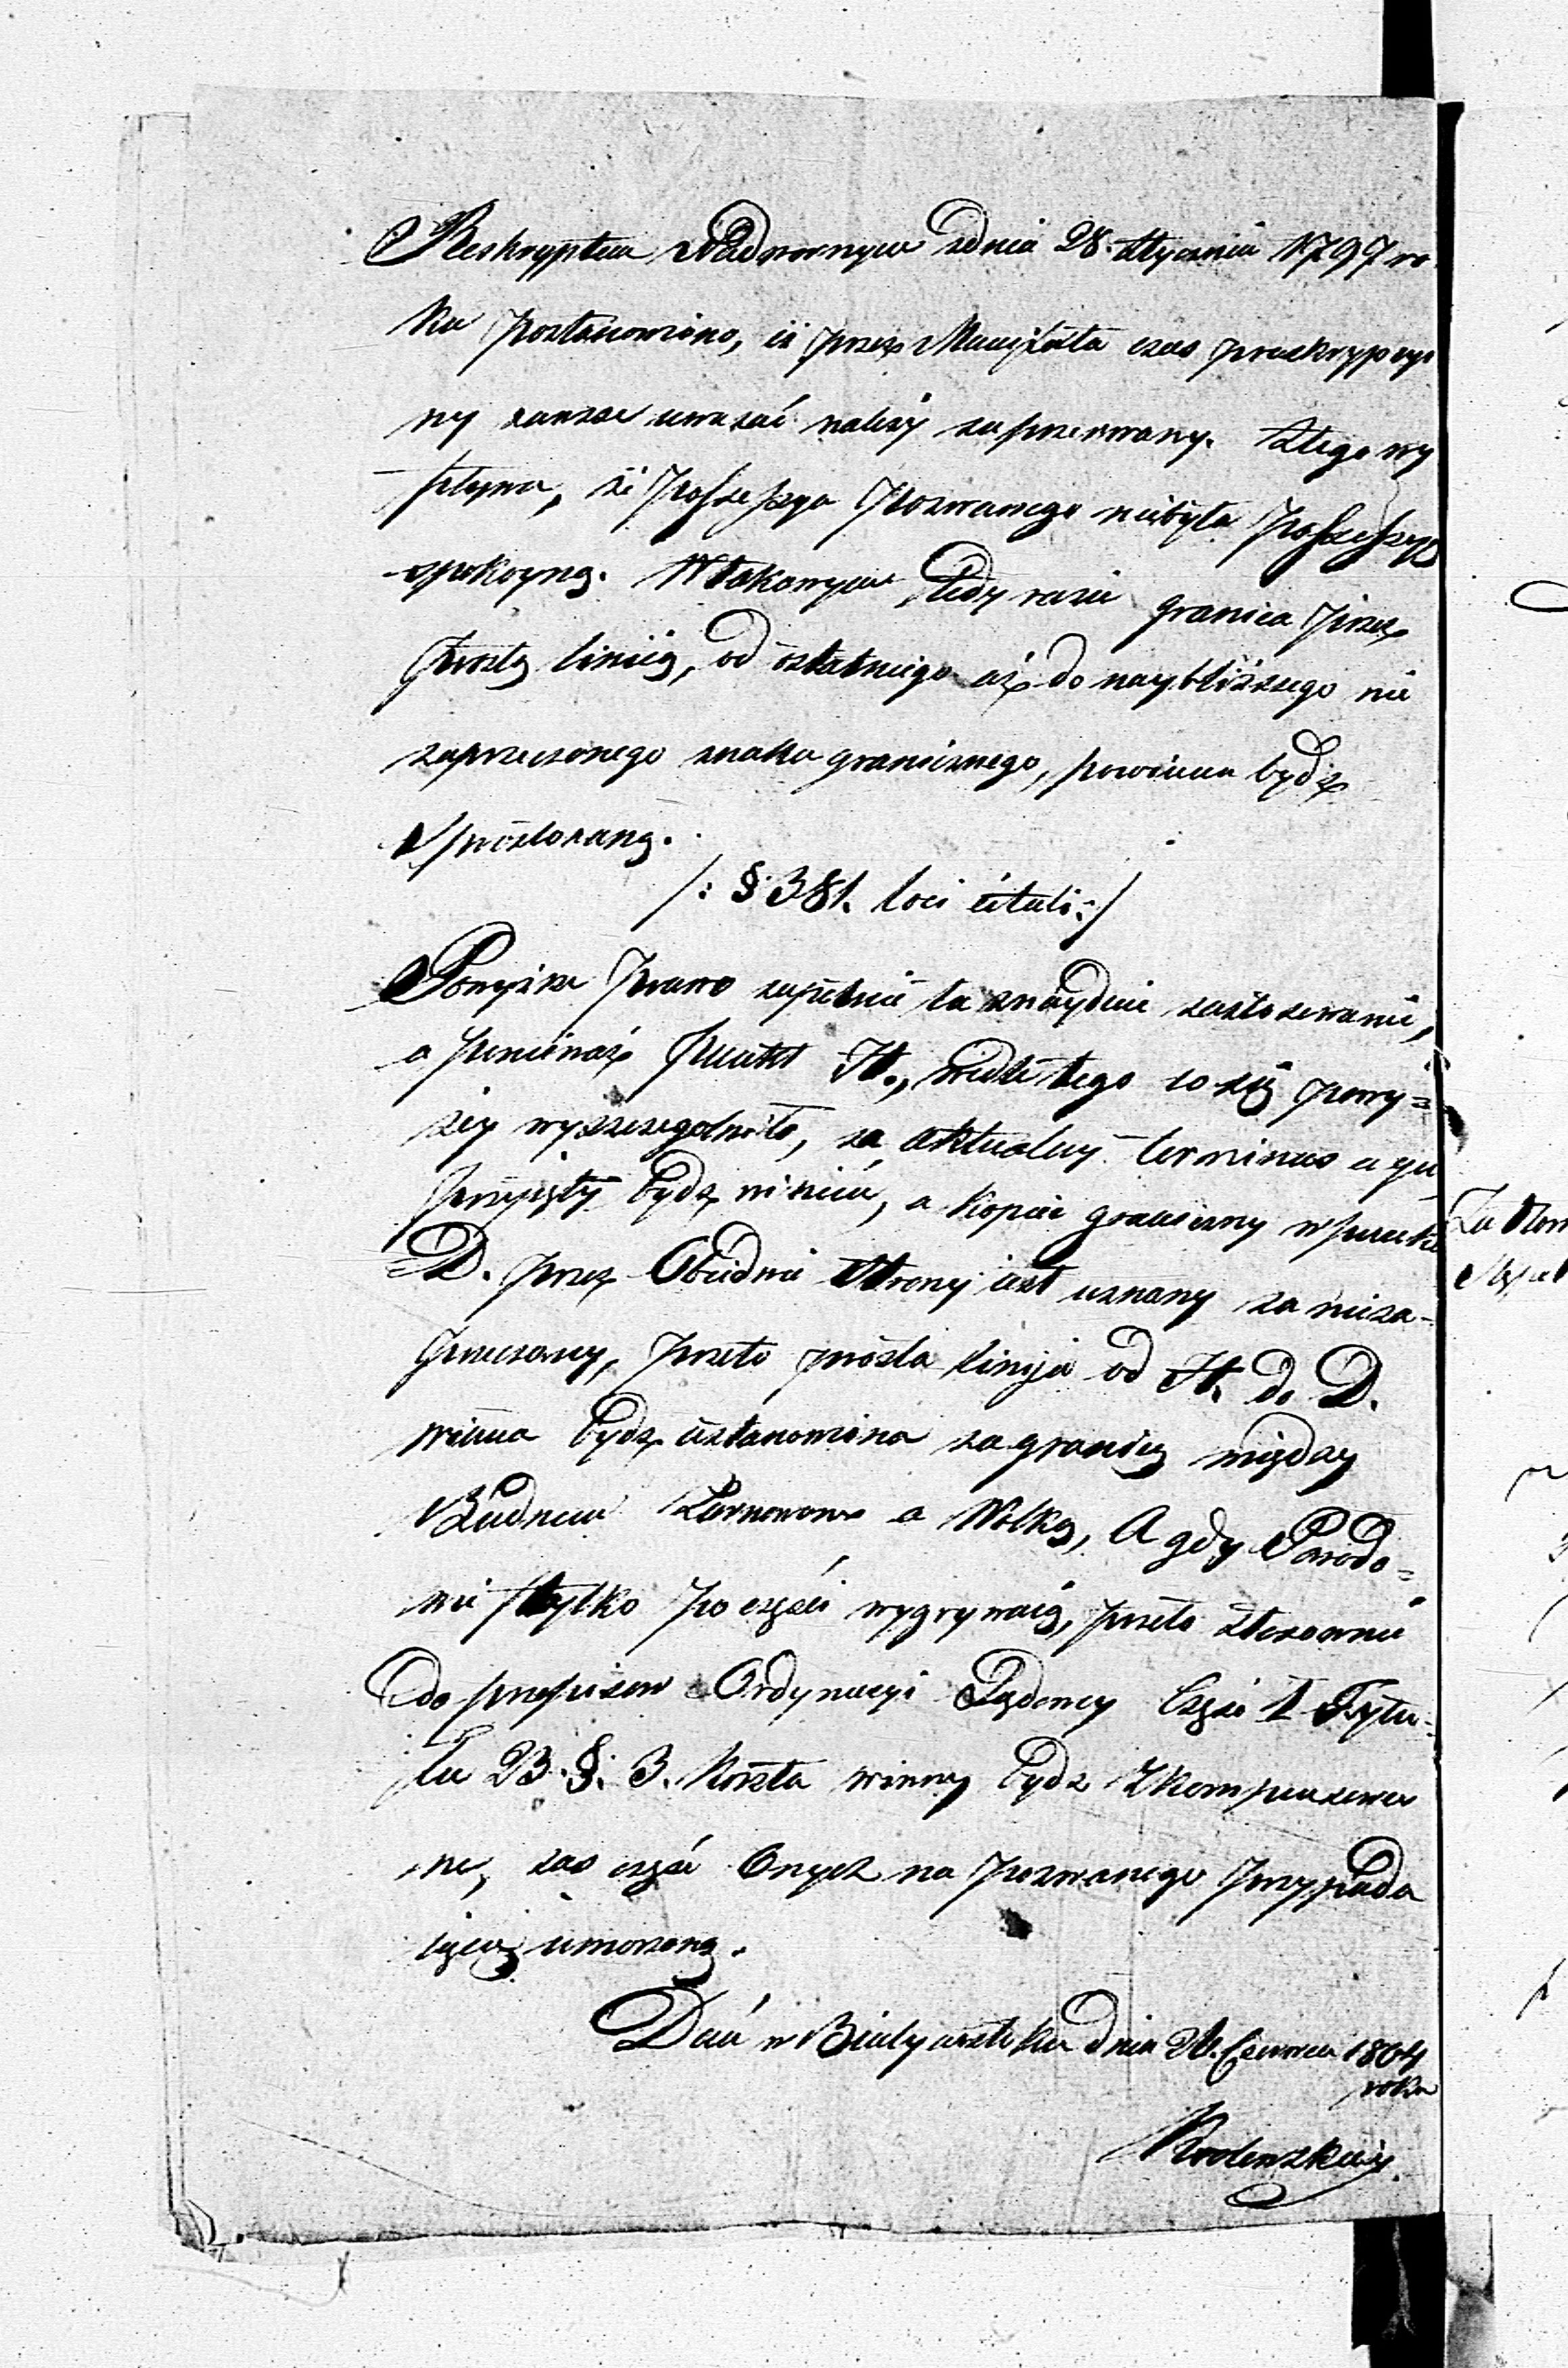 Reskryptem Nadwornym zdnia 28. Stycznia 1797 ro-
ku postanowiono, iż przez Manifesta czas preskrypcyi
ny zawsze uważać należy za przerwany. Ztego wy
pływa, że Possessya Pozwanego niebyła Possessyą
spokoyną. W takowym tedy razie granica przez
prostą liniię, od ostatniego aż do naybliższego nie
zaprzeczonego znaku granicznego, powinna bydź
sprostowaną.
/: § 381. loci citati :/
Powyższe Prawo zupełnie tu znaydzie zastosowanie,
a ponieważ punkt H., wedle tego co się powy=
żey wyszczegolniło, za aktualny terminus a quo
przyięty bydź winien, a kopiec graniczny w punkcie
D. przez Obiedwie Strony iest uznany za nieza-
przeczony, przeto prosta linija od H. do D.
winna bydź ustanowiona za granicę między
Budnem Żarnowem a Wolką, A gdy Powodo=
wie tylko po części wygrywaią, przeto stosownie
do przepisow Ordynacyi Sądowey Część I Tytu=
łu 23. §. 3. koszta winny bydź skompensowa
ne, zaś część Onych na pozwanego przypada
iącą umorzoną.
Dan w Białymstoku dnia Czerwca 1804
roku